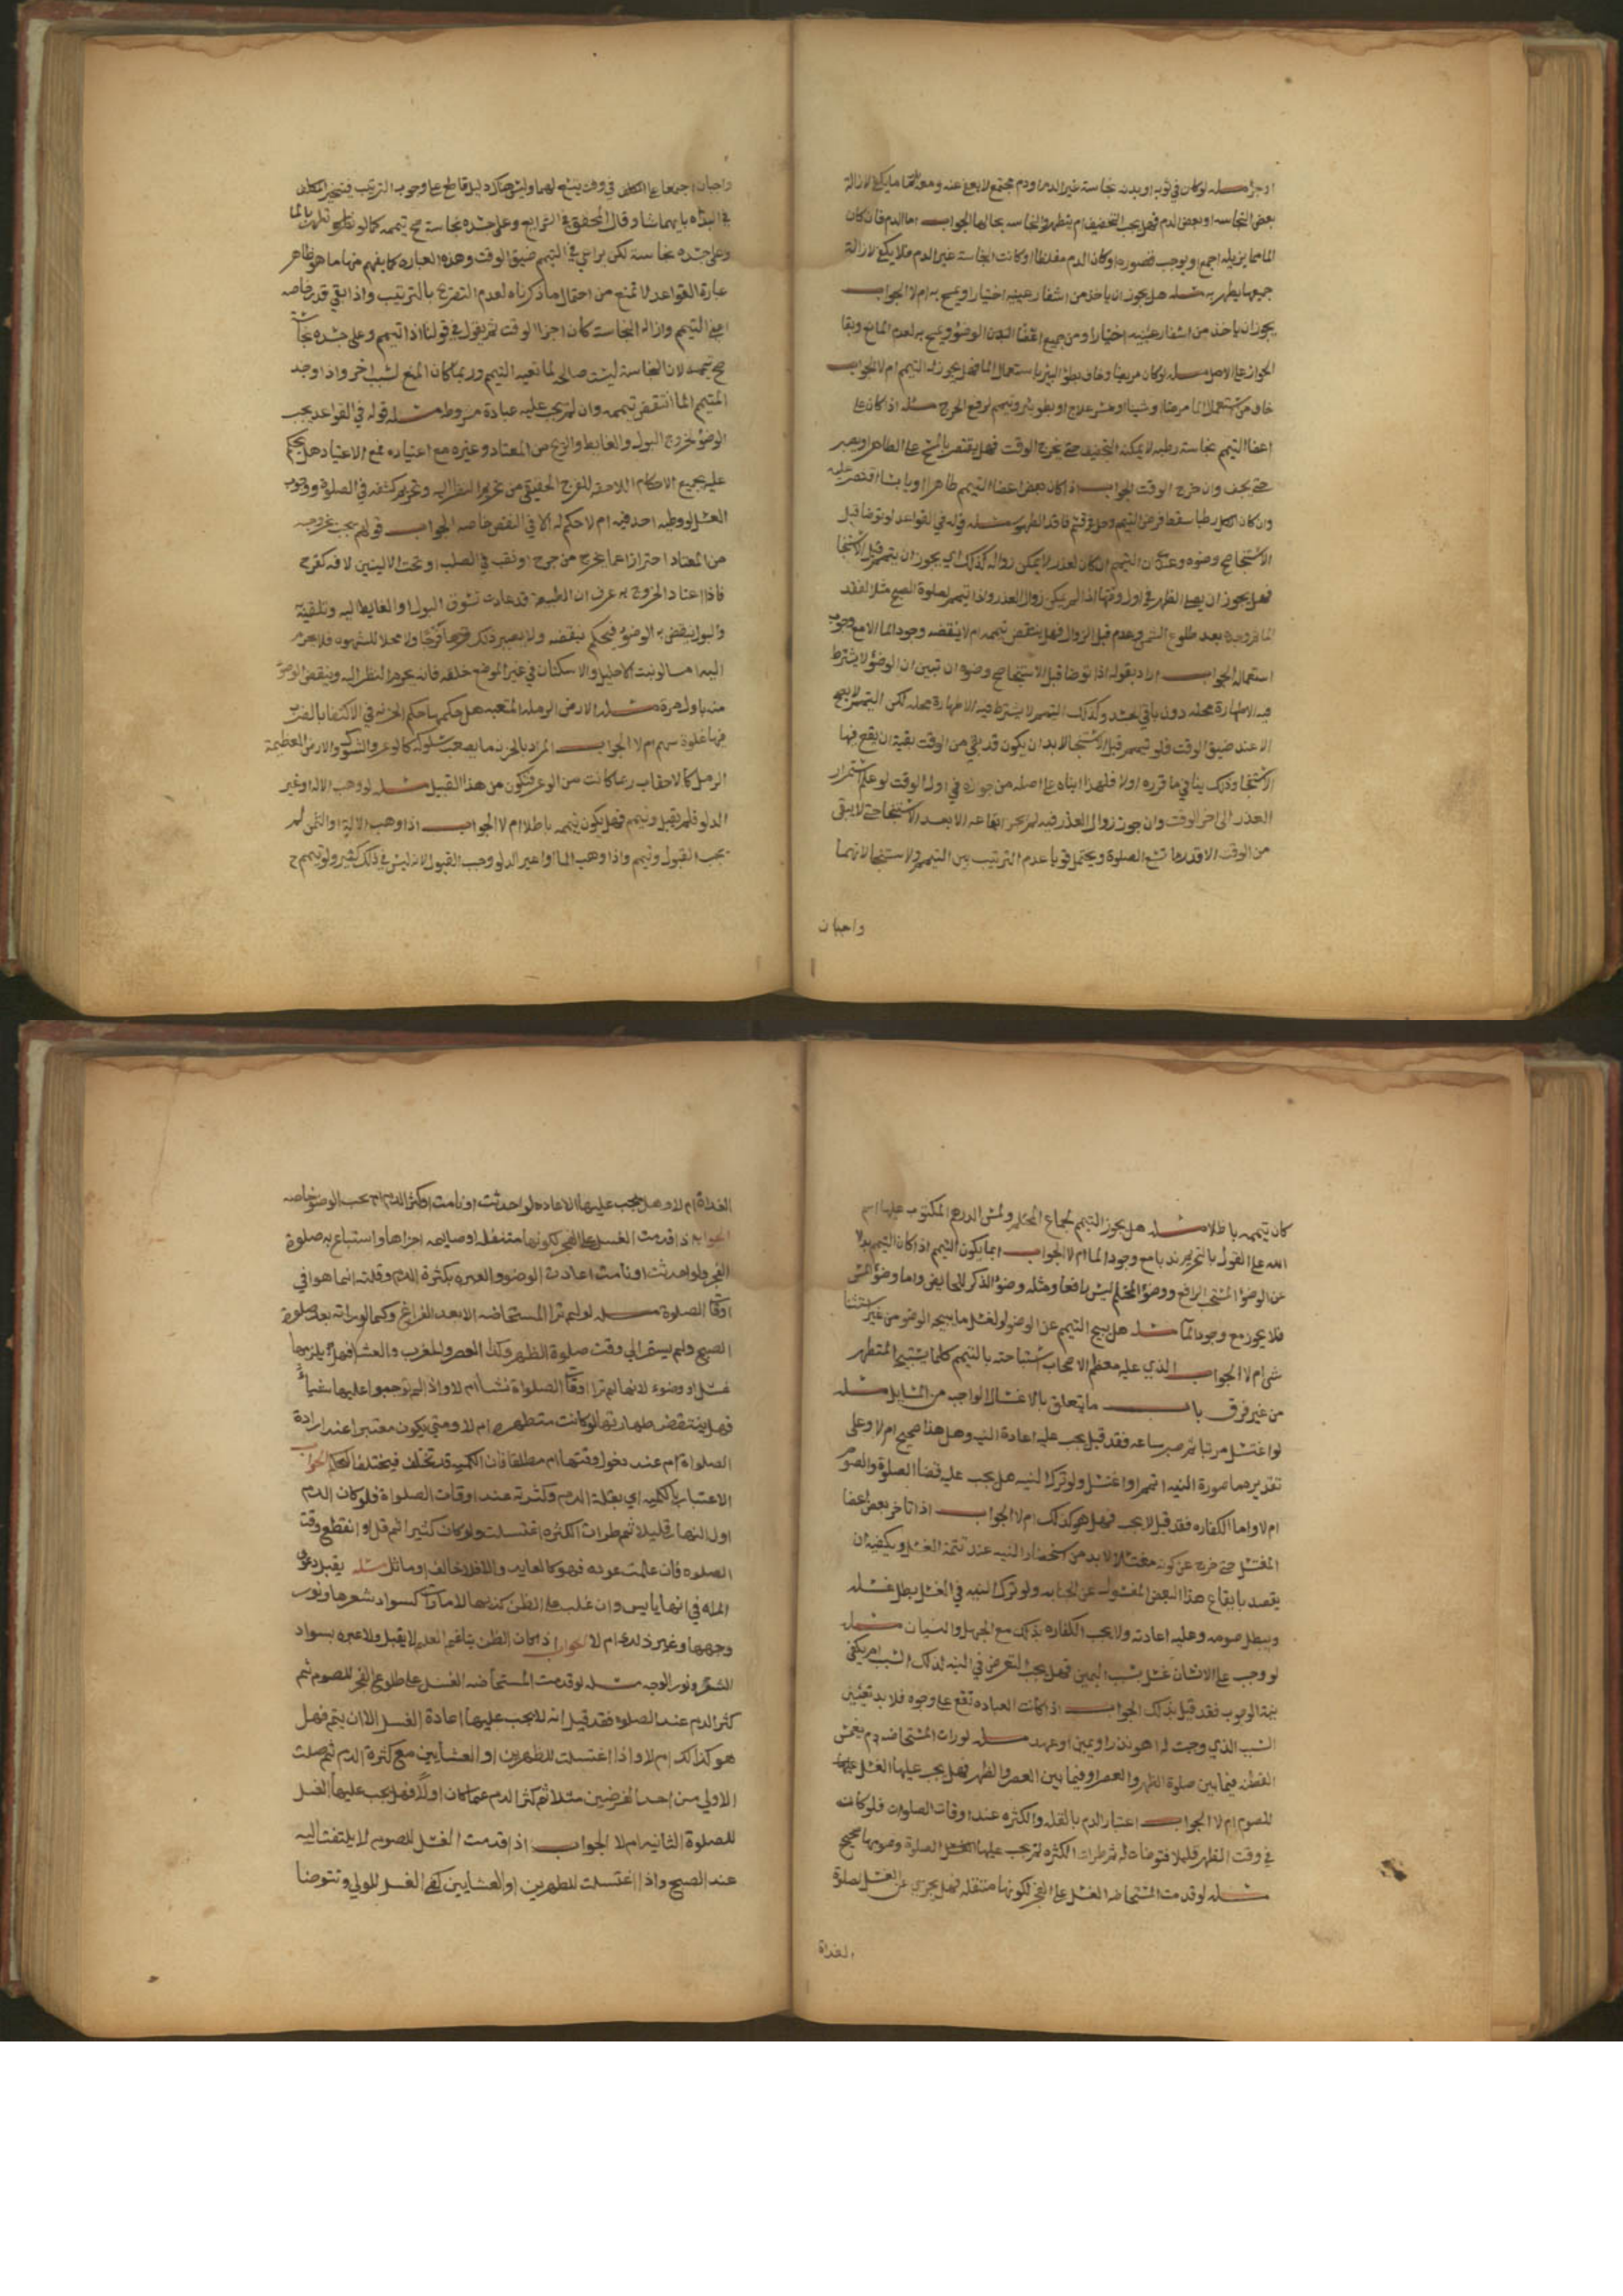 اوجزا مسئله لوكان في ثوبه او بدنه نجاسة غير الدم او دم مجتمع لا يعفى عنه ومعه من الما ما يكفي لازالة
بعض النجاسه او بعض الدم فهل يجب التخفيف ام يتطهر والنجاسه بحالها الجواب اما الدم فان كان
الما مما يزيله اجمع او يوجب قصوره او كان الدم مغلظا او كانت النجاسة غير الدم فلا يكفي لازالة
جميعها يطهر به مسئله هل يجوز ان ياخذ من اشفار عينيه اختيارا ويمسح به ام لا الجواب
يجوز ان ياخذ من اشفار عينيه اختيارا ومن جميع اعضا الوضؤ ويمسح به لعدم المانع وبقا
الجواز على الاصل مسئله لوكان مريضا وخاف بطؤ البرء باستعمال الما فهل يجوز له التيمم ام لا الجواب
خاف من استعمال الما مرضا او شينا او عسر علاج او بطو برء يتيمم لرفع الحرج مسئله اذا كان على
اعضا التيمم نجاسة رطبه لا يمكنه التجفيف حتى يخرج الوقت فهل يقتصر بالمسح على الطاهر او يصبر
حتى يجف وان خرج الوقت الجواب اذا كان بعض اعضا التيمم طاهرا او يابسا اقتصر عليه
وان كان الكل رطبا سقط فرض التيمم وحل في قسم فاقد الطهور مسئله قوله في القواعد لو توضا قبل
الاستنجا صح وضوه وعندي ان التيمم ان كان لعذر لا يمكن زواله كذلك اي يجوز ان يتيمم قبل الاستنجا
فهل يجوز ان يصلى الظهر في اول وقتها اذا لم يمكن زوال العذر واذا تيمم لصلوة الصبح مثلا لفقد
الما فوجده بعد طلوع الشمس وعدم قبل الزوال فهل ينتقض تيممه ام لا ينقضه وجود الما الا مع وجوب
استعماله الجواب اراد بقوله اذا توضا قبل الاستنجا صح وضوه ان تبين ان الوضؤ لا يشترط
فيه الا طهارة محله دون باقي الجسد وكذلك التيمم لا يشترط فيه الا طهارة محله لكن التيمم لا يصح
الا عند ضيق الوقت فلو تيمم قبل الاستنجا لابد ان يكون قد بقي من الوقت بقية ان يقع فيها
الاستنجا وذلك ينافي ما قرره اولا فلهذا ابناه على اصله من جوازه في اول الوقت لو علم استمرار
العذر الى اخر الوقت وان جوز زوال العذر فيه لم يجز ايقاعه الا بعد الاستنجا حتى لا يبقى
من الوقت الا قدر ما تسع الصلوة ويحتمل قويا عدم الترتيب بين التيمم والاستنجا لانهما
واجبان
واجبان اجتمعا على المكلف في وقت يتسع لهما وليس هناك دليل قاطع على وجوب الترتيب فيتخير المكلف
في البداه بايهما شا وقال المحقق في الشرايع وعلى جسده نجاسة صح تيممه كما لو تطهر بالما
وعلى جسده نجاسة لكن يراعي في التيمم ضيق الوقت وهذه العبارة كما يفهم منها ما هو ظاهر
عبارة القواعد لا تمنع من احتمال ما ذكرناه لعدم التصريح بالترتيب واذا بقي قدر خاصه
التيمم وازالة النجاسة كان اخر الوقت ثم يقول في قولنا اذا تيمم وعلى جسده نجاسة
صح تيممه لان النجاسة ليست صالحة لمانعيه التيمم وربما كان المنع لسبب اخر واذا وجد
المتيمم الما انتقض تيممه وان لم يجب عليه عبادة مشروطه مسئله قوله في القواعد يجب
الوضؤ لخروج البول والغايط والريح من المعتاد وغيره مع اعتياده فمع الاعتياد هل يحكم
عليه بجميع الاحكام اللاحقه للفرج الحقيقي من تحريم النظر اليه وتحريم كشفه في الصلوة ووجوب
الغسل لو وطيه احد فيه ام لا حكم له الا في النقض خاصه الجواب قولهم يجب بخروجه
من المعتاد احترازا عما يخرج من جرح او نقب في الصلب او تحت الاليتين لافه كقرح
فاذا اعتاد الخروج به عرف ان الطبيعة قد عادت تسوق البول او الغايط اليه وتلقيه
والبول ينقض به الوضؤ فيحكم بنقضه ولا يصير ذلك فرجا ولا محلا للشهوه فلا يحرم
اليه اما لو نبت الاحليل والاسكتان في غير الموضع خلقه فانه يحرم النظر اليه وينقض الوضؤ
منه باول مرة مسئله الارض الرملة المتعبه هل حكمها حكم الحزنه في الاكتفا بالضرب
فيها غلوة سهم ام لا الجواب المراد بالحزنه ما يصعب سلوكه كالوعر والشوك والارض العظيمة
الرمل كالاحقاف ربما كانت من الوعر فتكون من هذا القبيل مسئله لو وهب الاله او غير
الدلو فلم يقبل وتيمم فهل يكون تيممه باطلا ام لا الجواب اذا وهب الالة او الثمن لم
يجب القبول وتيمم واذا وهب الما او اعير الدلو وجب القبول لانه ليس في ذلك كثير ولو تيمم ح
كان تيممه باطلا مسئله هل يجوز التيمم لجماع المحتلم ولمس الدرهم المكتوب عليها اسم
الله على القول بالتحريم ندبا مع وجود الما ام لا الجواب انما يكون التيمم اذا كان التيمم بدلا
عن الوضؤ المستحب الرافع ووضؤ المحتلم ليس رافعا ومثله وضؤ الذكر للحايض واما وضؤ المس
فلا يجوز مع وجود الما مسئله هل يبيح التيمم عن الوضو او الغسل ما يبيحه الوضو من غير استثنا
شى ام لا الجواب الذي عليه معظم الاصحاب استباحته بالتيمم كلما يستبيح المتطهر
من غير فرق باب ما يتعلق بالاغسال الواجب من المسايل مسئله
لو اغتسل مرتبا ثم صبر ساعه فقد قيل يجب عليه اعادة النيه وهل هذا صحيح ام لا وعلى
تقديرهما صورة النيه اتمم او اغتسل ولو ترك النيه هل يجب عليه قضا الصلوة والصوم
ام لا واما الكفاره فقد قيل لا يجب فهل هو كذلك ام لا الجواب اذا تاخر بعض اعضا
المغتسل حتى خرج عن كونه مغتسلا لابد من استحضار النيه عند تتمة الغسل ويكفيه ان
يقصد بايقاع هذا البعض المغسول عن الجنابه ولو ترك النيه في الغسل بطل غسله
وبطل صومه وعليه اعادته ولا يجب الكفاره بذلك مع الجهل والنسيان مسئله
لو وجب على الانسان غسل بسبب اليمين فهل يجب التعرض في النيه لذلك السبب ام يكفي
نية الوجوب فقد قيل بذلك الجواب اذا كانت العباده تقع على وجوه فلابد تعيين
السبب الذي وجبت له اهو نذر او يمين او عهد مسئله لو رات المستحاضه دم يغمس
القطنه فيما بين صلوة الظهر والعصر او فيما بين العصر والظهر فهل يجب عليها الغسل
للصوم ام لا الجواب اعتبار الدم بالقله والكثره عند اوقات الصلوات فلو كانت
في وقت الظهر قليلا فتوضات له ثم طرات الكثره لم يجب عليها الغسل للصلوة وصومها صحيح
مسئله لو قدمت المستحاضه الغسل على الفجر لكونها متنفله فهل يجزي عن الغسل لصلوة
الغداة
الغداة ام لا وهل يجب عليها الاعاده لو احدثت او نامت او كثر الدم ام يجب الوضو خاصه
الجواب اذا قدمت الغسل على الفجر لكونها متنفله او صايمه اجزاها واستباح به صلوة
الفجر ولو احدثت او نامت اعادت الوضو والعبره بكثرة الدم وقلته انما هو في
اوقات الصلوة مسئله لو لم تر المستحاضه الا بعد الفراغ وكما لو راته بعد صلوة
الصبح ولم يستمر الى وقت صلوة الظهر وكذا العصر والمغرب والعشا فهل يلزمها
غسل او وضوء لانها لم تر اوقات الصلواة شيا ام لا واذا لم توجبوا عليها شيا
فهل ينتقض طهارتها لو كانت متطهره ام لا ومتى يكون معتبرا عند ارادة
الصلواة ام عند دخول وقتها ام مطلقا فان الكميه قد تختلف فيختلف الحكم الجواب
الاعتبار بالكميه اي بقلة الدم وكثرته عند اوقات الصلواة فلو كان الدم
اول النهار قليلا ثم طرات الكثره اغتسلت ولو كان كثيرا ثم قل او انقطع وقت
الصلوه فان علمت عوده فهو كالعايد والا فلا خالف او ماثل مسئله يقبل دعوى
المراه في انها يايس وان غلب على الظن كذبها لامارات كسواد شعرها ونور
وجهها وغير ذلك ام لا الجواب اذا كان الظن يتاخم العلم لا يقبل ولا عبره بسواد
الشعر ونور الوجه مسئله لو قدمت المستحاضه الغسل على طلوع الفجر للصوم ثم
كثر الدم عند الصلوه فقد قيل انه لا يجب عليها اعادة الغسل الا ان يتم فهل
هو كذلك ام لا واذا اغتسلت للظهرين او العشايين مع كثرة الدم ثم صلت
الاولى من احد الفرضين مثلا ثم كثر الدم عما كان اولا فهل يجب عليها الغسل
للصلوة الثانيه ام لا الجواب اذا قدمت الغسل للصوم لا يلتفت اليه
عند الصبح واذا اغتسلت للظهرين او العشايين كفى الغسل للاولى وتتوضا